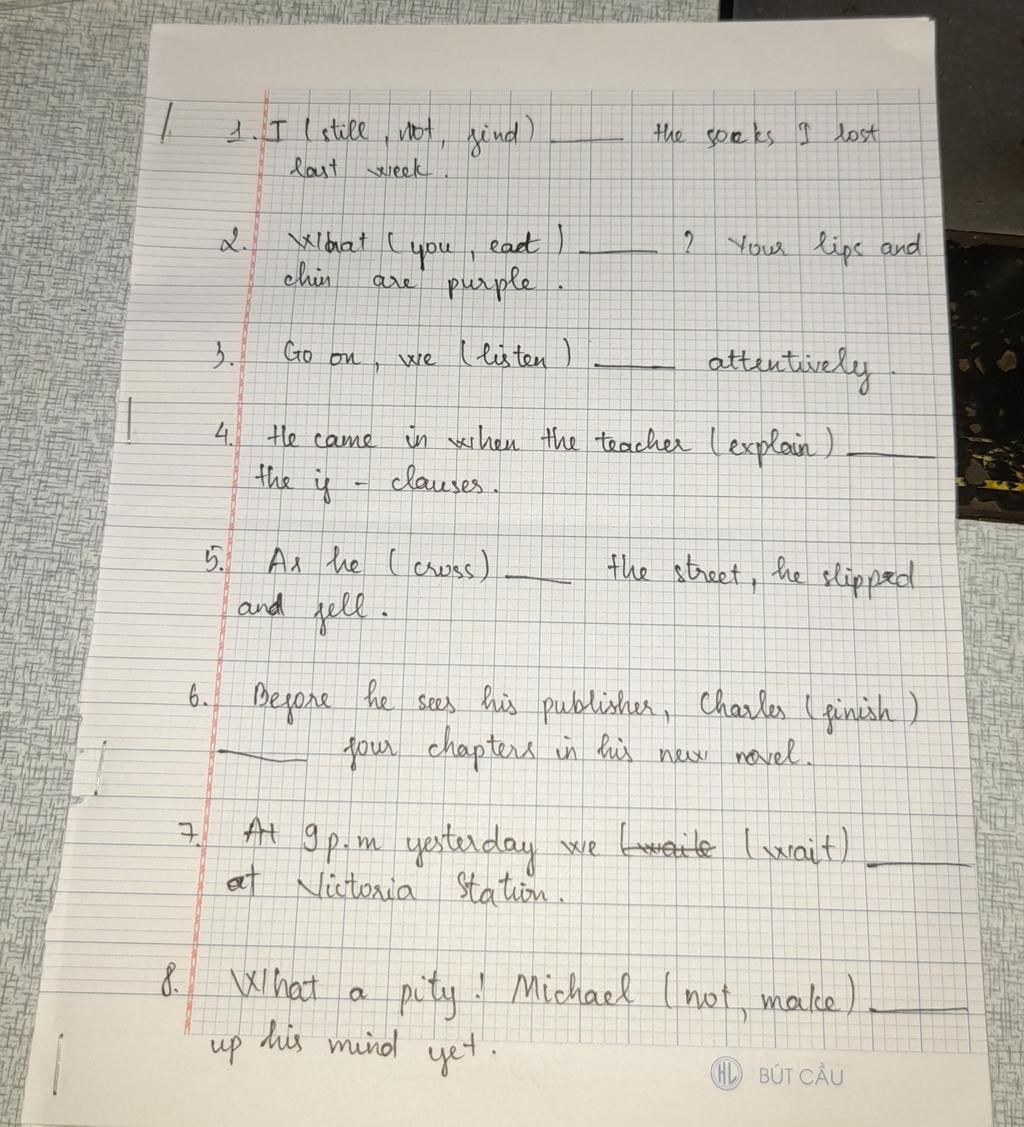 1. I (still, not, find) ____ the socks I lost
last week.
2. What (you, eat) ____ ? Your lips and
chin are purple.
3. Go on, we (listen) ____ attentively.
4. He came in when the teacher (explain) ____
the if - clauses.
5. As he (cross) ____ the street, he slipped
and fell.
6. Before he sees his publisher, Charles (finish)
____ four chapters in his new novel.
7. At 9 p.m yesterday we (waite (wait) ____
at Victoria Station.
8. What a pity! Michael (not, make) ____
up his mind yet.
HL BÚT CẦU